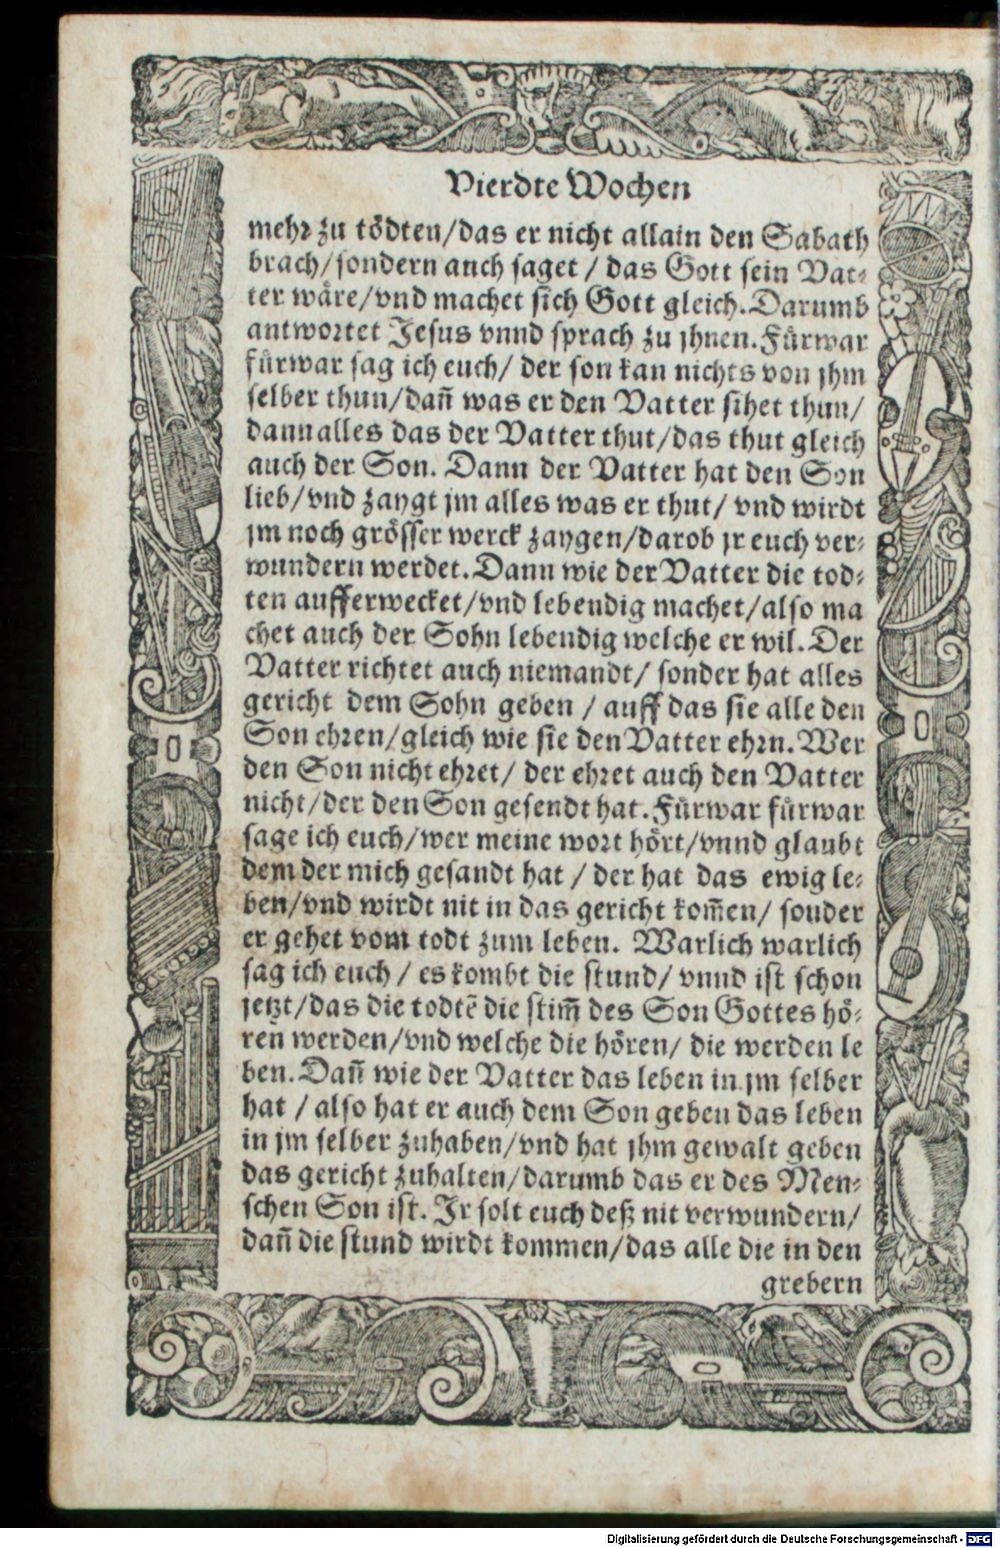 Vierdte Wochen
mehr zu tödten/das er nicht allain den Sabath
brach/sondern auch saget / das Gott sein Vat-
ter wäre/vnd machet sich Gott gleich. Darumb
antwortet Jesus vnnd sprach zu jhnen. Fürwar
fürwar sag ich euch/ der son kan nichts von jhm
selber thun/dañ was er den Vatter sihet thun/
dann alles das der Vatter thut/das thut gleich
auch der Son. Dann der Vatter hat den Son
lieb/vnd zaygt jm alles was er thut/ vnd wirdt
jm noch grösser werck zaygen/darob jr euch ver-
wundern werdet. Dann wie der Vatter die tod-
ten aufferwecket/vnd lebendig machet/also ma
chet auch der Sohn lebendig welche er wil. Der
Vatter richtet auch niemandt/ sonder hat alles
gericht dem Sohn geben / auff das sie alle den
Son ehren/gleich wie sie den Vatter ehrn. Wer
den Son nicht ehret/ der ehret auch den Vatter
nicht/der den Son gesendt hat. Fürwar fürwar
sage ich euch/wer meine wort hört/vnnd glaubt
dem der mich gesandt hat / der hat das ewig le-
ben/vnd wirdt nit in das gericht kom̃en/ sonder
er gehet vom todt zum leben. Warlich warlich
sag ich euch / es kombt die stund/ vnnd ist schon
jetzt/das die todtẽ die stim̃ des Son Gottes hö-
ren werden/vnd welche die hören/ die werden le
ben. Dañ wie der Vatter das leben in jm selber
hat / also hat er auch dem Son geben das leben
in jm selber zuhaben/vnd hat jhm gewalt geben
das gericht zuhalten/darumb das er des Men-
schen Son ist. Ir solt euch deß nit verwundern/
dañ die stund wirdt kommen/das alle die in den
grebern
Digitalisierung gefördert durch die Deutsche Forschungsgemeinschaft - DFG